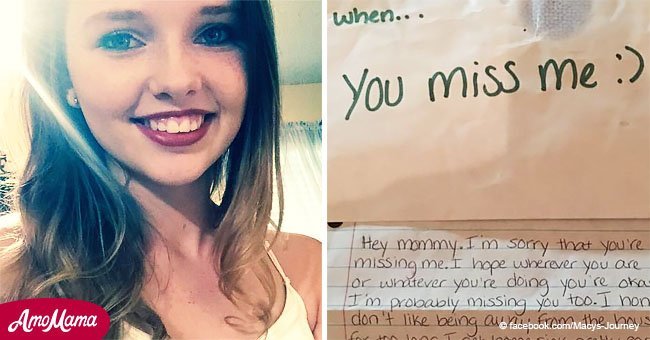 when...
You miss me :)
Hey mommy. I'm sorry that you're
missing me. I hope wherever you are
or whatever you're doing you're oka
I'm probably missing you too. I hon
don't like being away from the hous
AmoMama
© facebook.com/Macys-Journey